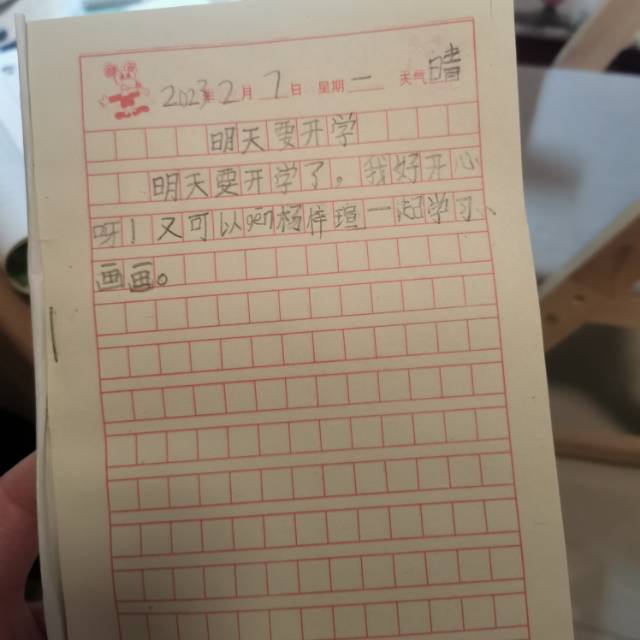 2023年2月7日 星期一 天气晴
明天要开学
明天要开学了。我好开心
呀！又可以和杨梓瑄一起学习、
画画。